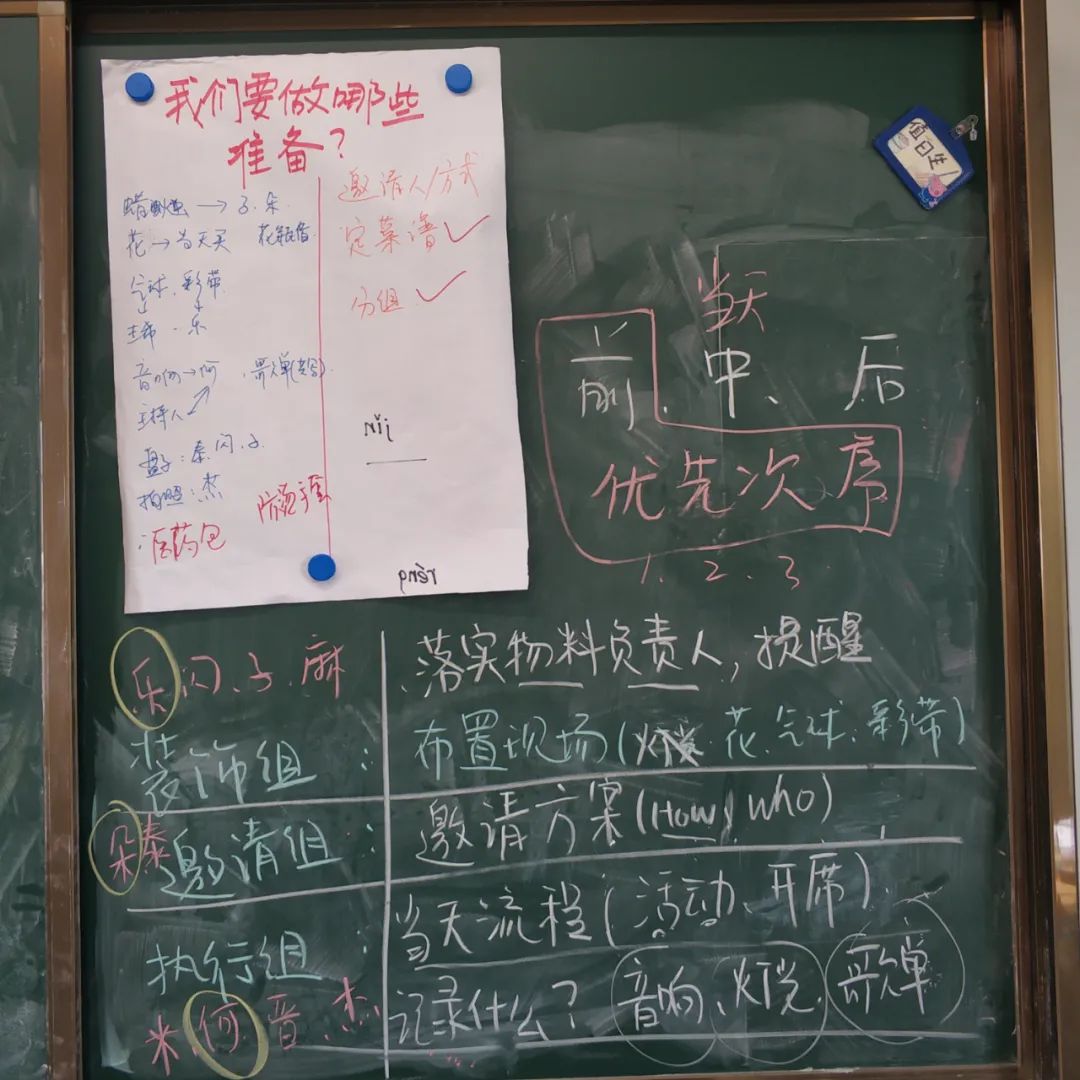 我们要做哪些
准备?
蜡烛 → 子.朵.
花→当天买 花瓶借.
气球.彩带.
↓ ↓
乐
音响→何
主持人
盘子:秦闪子
拍照:杰
医药包 防烫手套
邀请人/方式
定菜谱✓
分组✓
jǐn
rēng
值日生
当天
前、中、后
优先次序
1. 2. 3.
乐闪.子.麻
装饰组:
落实物料负责人,提醒
布置现场( 花.气球.彩带)
朵秦
邀请组:
邀请方案(How, who)
执行组:
米.何.晋.杰
当天流程(活动、开席)
记录什么? 音响、灯光、歌单